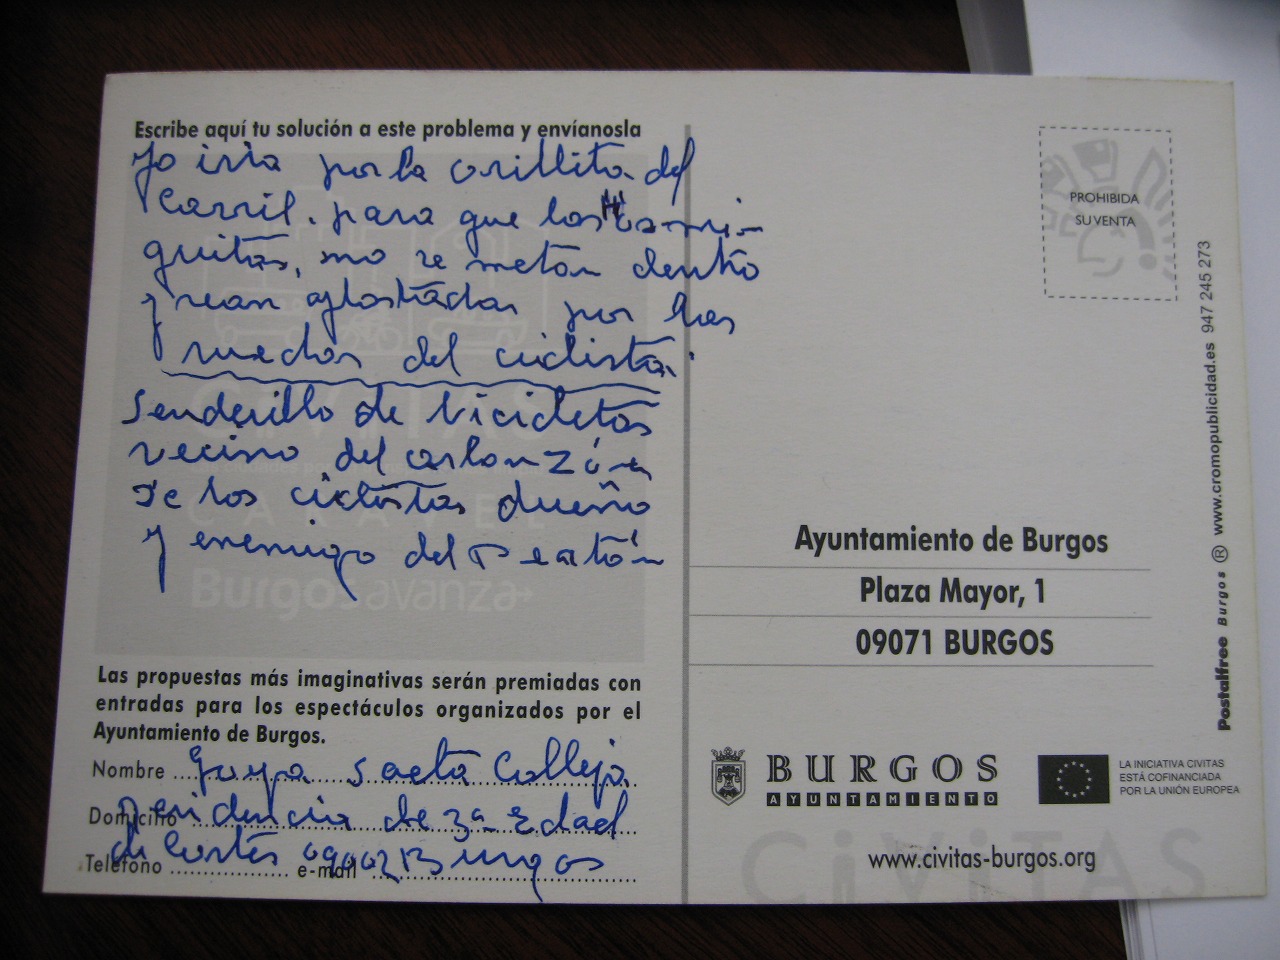 Escribe aquí tu solución a este problema y envíanosla
Yo iria por la orillita del
Carril. para que las
guitas, no se metan dentro
y sean aplastadas por las
ruedas del ciclista.
Senderillo de bicicletas
vecino del arlanzón
de los ciclistas dueño
y enemigo del Peatón
CIVITAS
CARAVEL
Burgosavanza
Las propuestas más imaginativas serán premiadas con
entradas para los espectáculos organizados por el
Ayuntamiento de Burgos.
Nombre Saeta Calleja
Domicilio residencia de 3ª Edad
Teléfono de Cortes e-mail 09002 Burgos
PROHIBIDA
SU VENTA
Ayuntamiento de Burgos
Plaza Mayor, 1
09071 BURGOS
BURGOS
AYUNTAMIENTO
LA INICIATIVA CIVITAS
ESTÁ COFINANCIADA
POR LA UNIÓN EUROPEA
www.civitas-burgos.org
CiViTAS
Postalfree Burgos ® www.cromopublicidad.es 947 245 273